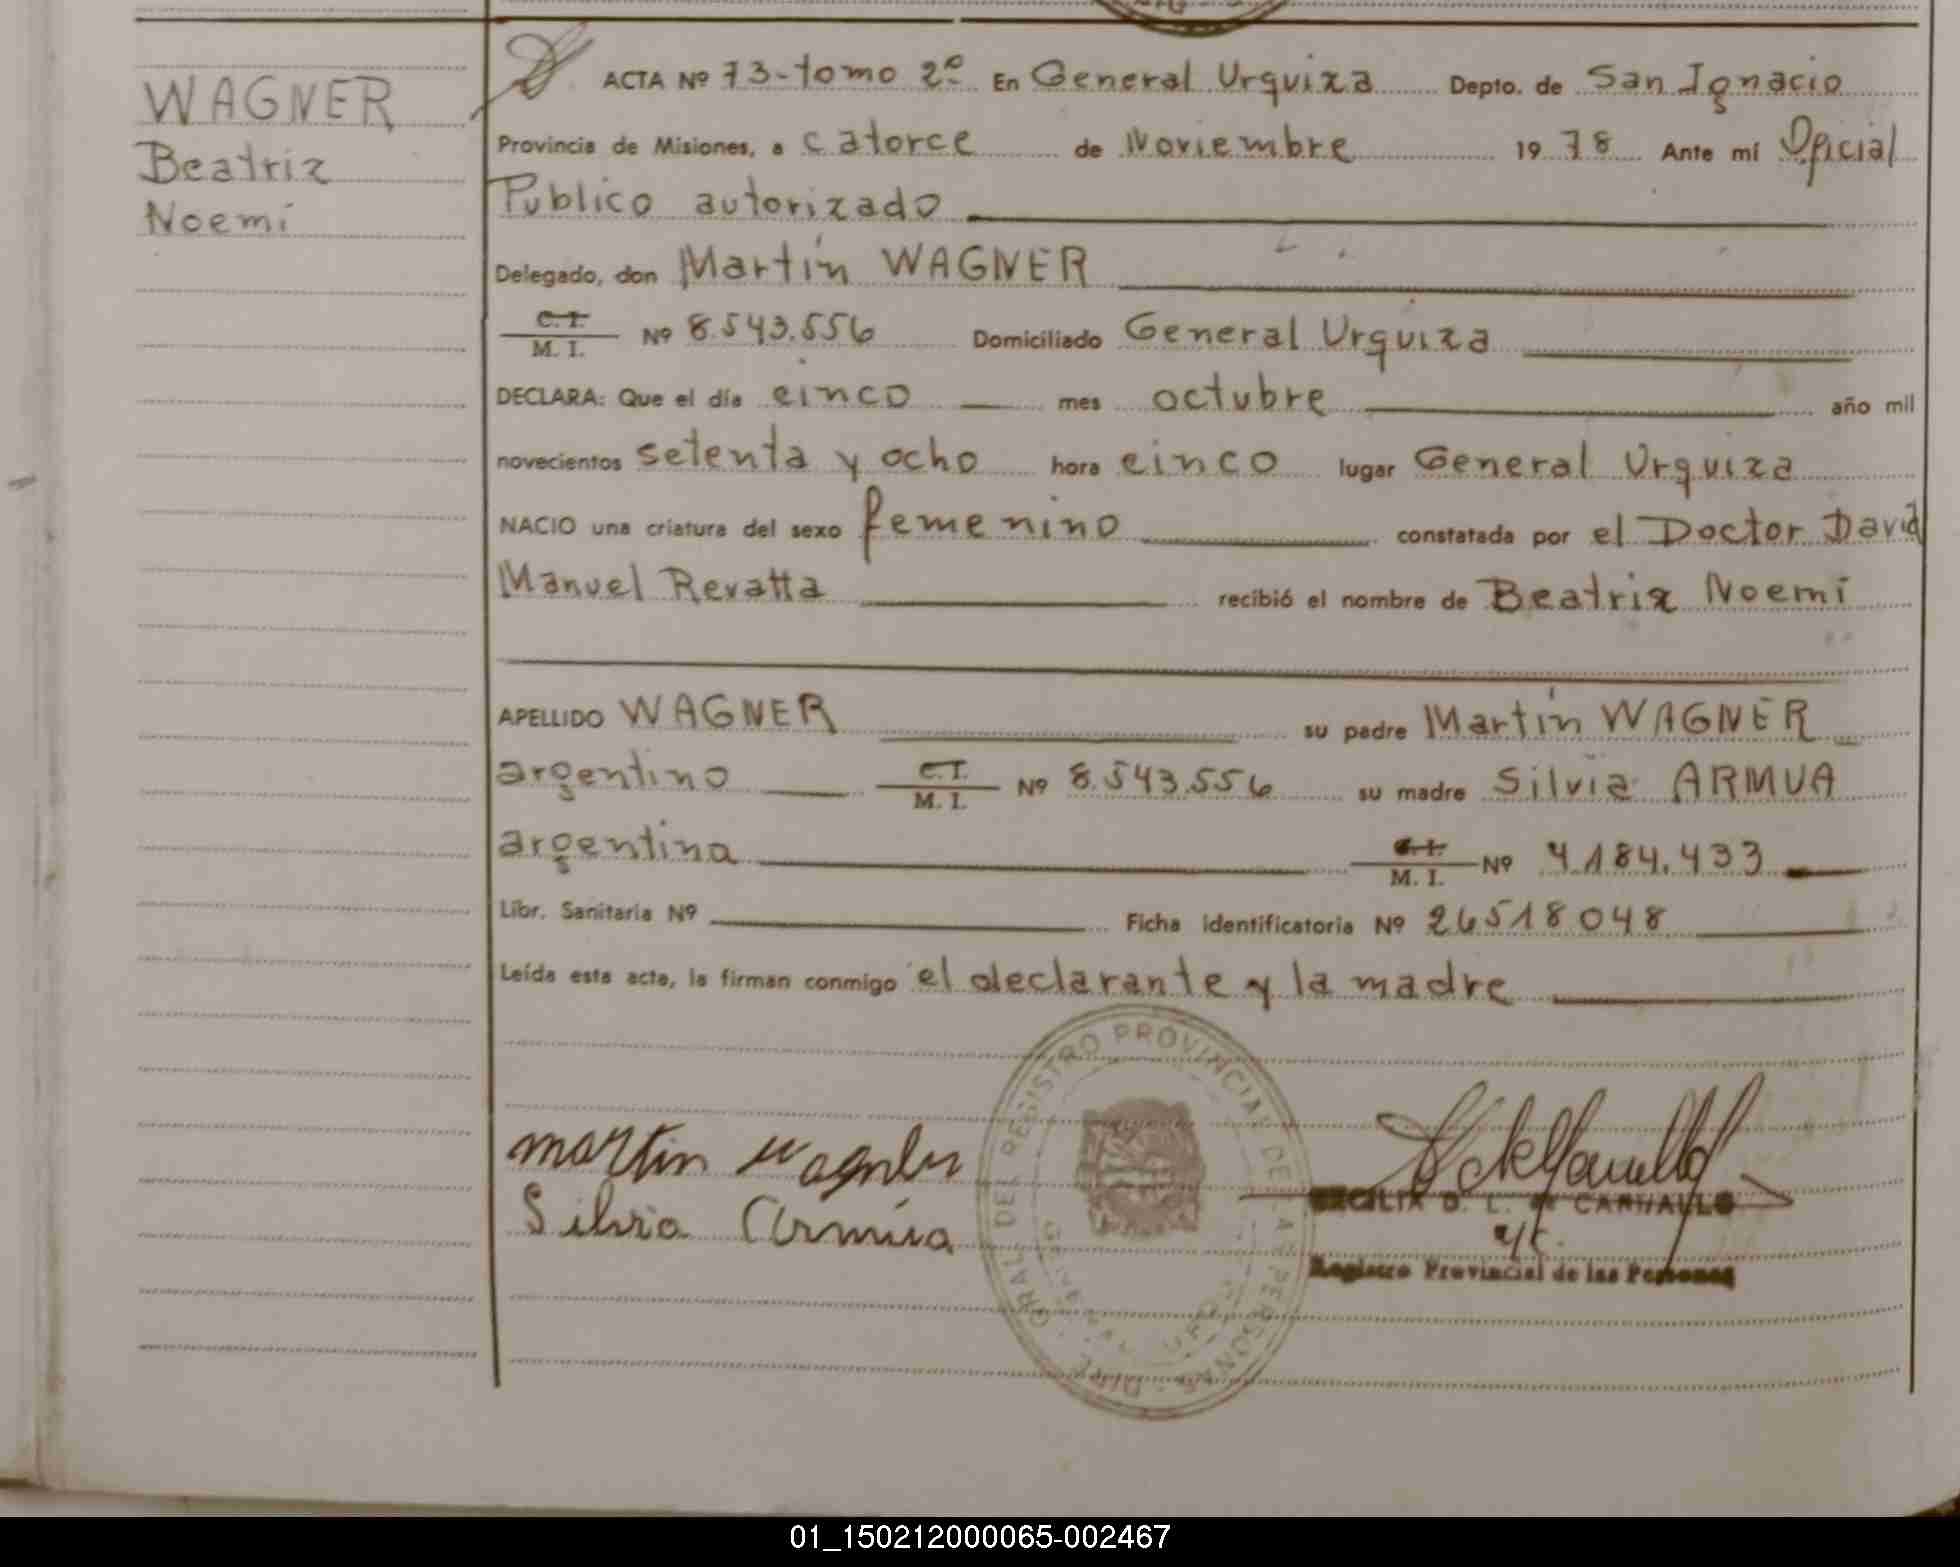 WAGNER
Beatriz
Noemí
ACTA Nº 73-tomo 2º En General Urquiza Depto. de San Ignacio
Provincia de Misiones, a catorce de Noviembre 1978 Ante mí Oficial
Publico autorizado
Delegado, don Martín WAGNER
C. I.
M. I. Nº 8.543.556 Domiciliado General Urquiza
DECLARA: Que el día cinco mes octubre año mil
novecientos setenta y ocho hora cinco lugar General Urquiza
NACIO una criatura del sexo femenino constatada por el Doctor David
Manuel Revatta recibió el nombre de Beatriz Noemí
APELLIDO WAGNER su padre Martín WAGNER
argentino C.I. M. I. Nº 8.543.556 su madre Silvia ARMUA
argentina C.I. M. I. Nº 4.184.433
Libr. Sanitaria Nº Ficha identificatoria Nº 26518048
Leída esta acta, la firman conmigo el declarante y la madre
GRAL DEL REGISTRO PROVINCIAL DE LAS PERSONAS - DIRE
martin wagner
Silvia Armúa
CECILIA D. L. de CARVALLO
a/c.
Registro Provincial de las Personas
01_150212000065-002467